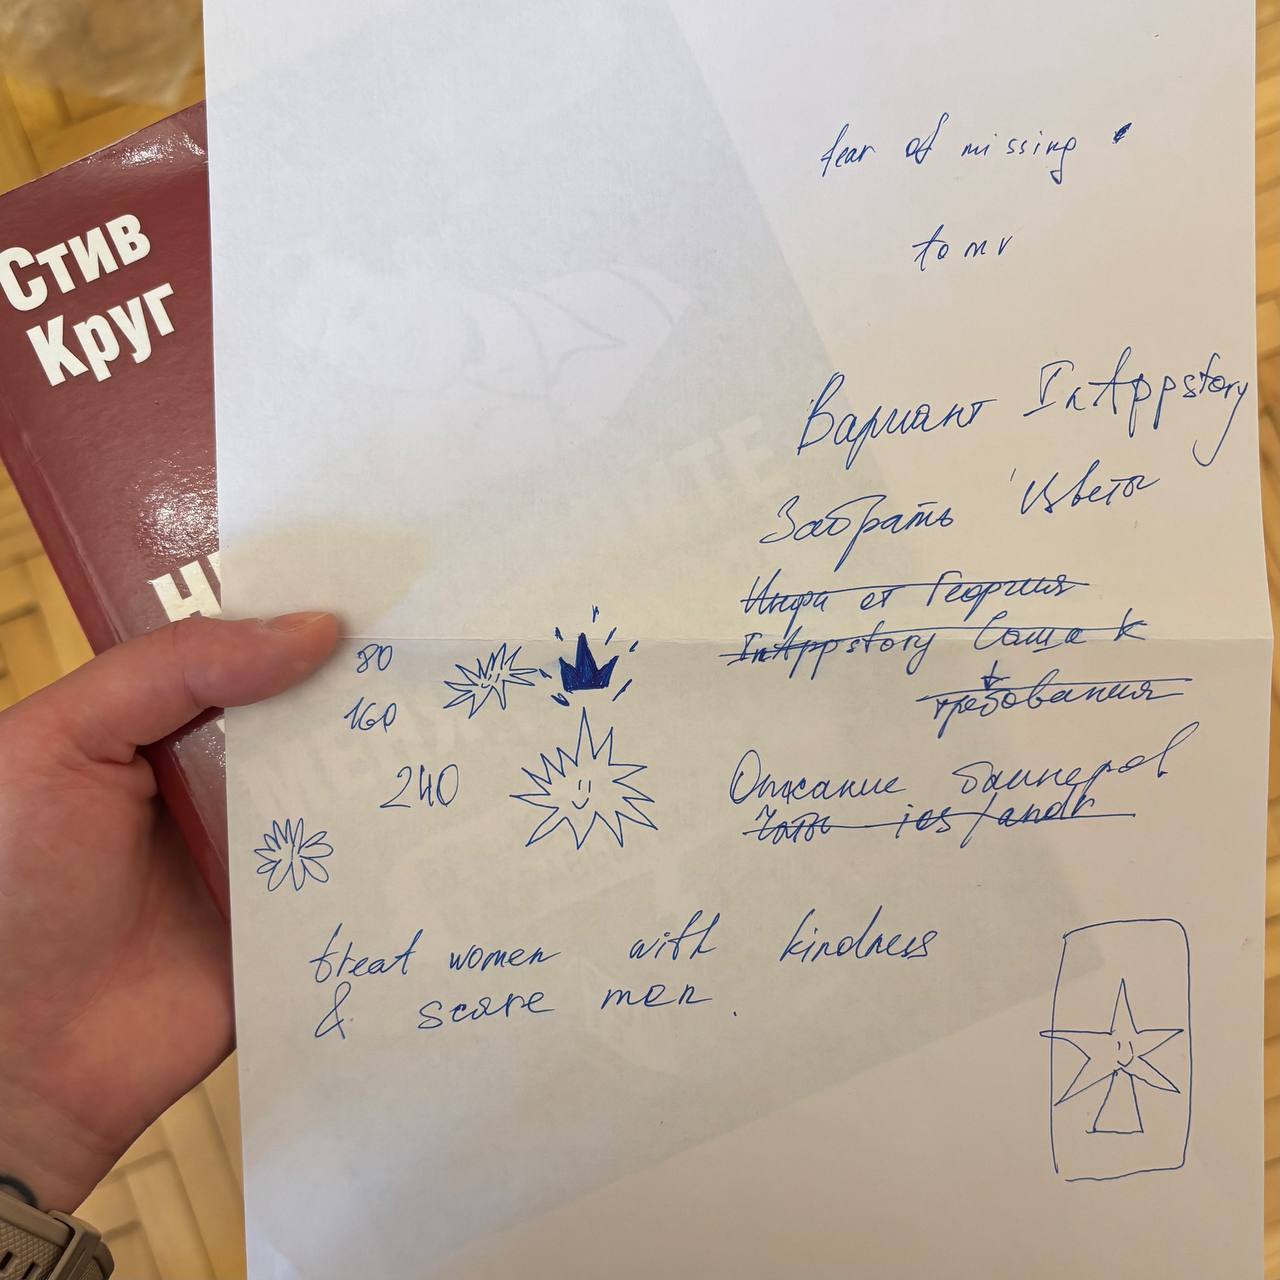 Стив
Круг
fear of missing
tomr
Вариант InAppstory
Забрать цветы
Инфа от Георгия
InAppstory Саша К
требования
80
160
240
Описание баннеров
ios/andr
treat women with kindness
& scare men.